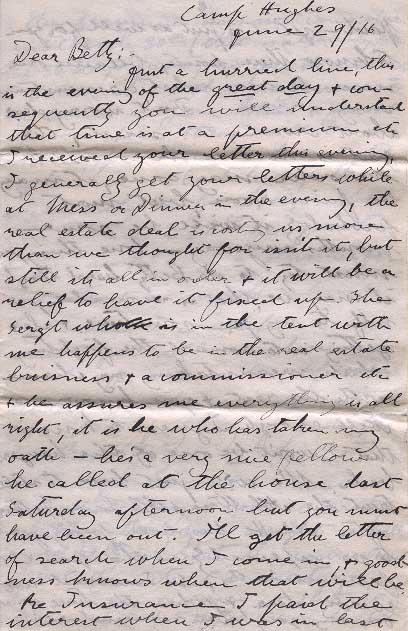 Camp Hughes
June 29/16
Dear Betty:-
Just a hurried line, this
is the evening of the great day & con-
sequently you will understand
that time is at a premium etc
I received your letter this evening,
I generally get your letters while
at Mess or Dinner in the evening, the
real estate deal is costing us more
than we thought for isn't it, but
still its all in order & it will be a
relief to have it fixed up. The
Serg't who is in the tent with
me happens to be in the real estate
buisness & a commissioner etc
& he assures me everything is all
right, it is he who has taken my
oath - hes a very nice fellow
he called at the house last
Saturday afternoon but you must
have been out. I'll get the letter
of search when I come in, & good-
ness knows when that will be.
Re Insurance I paid the
interest when I was in last